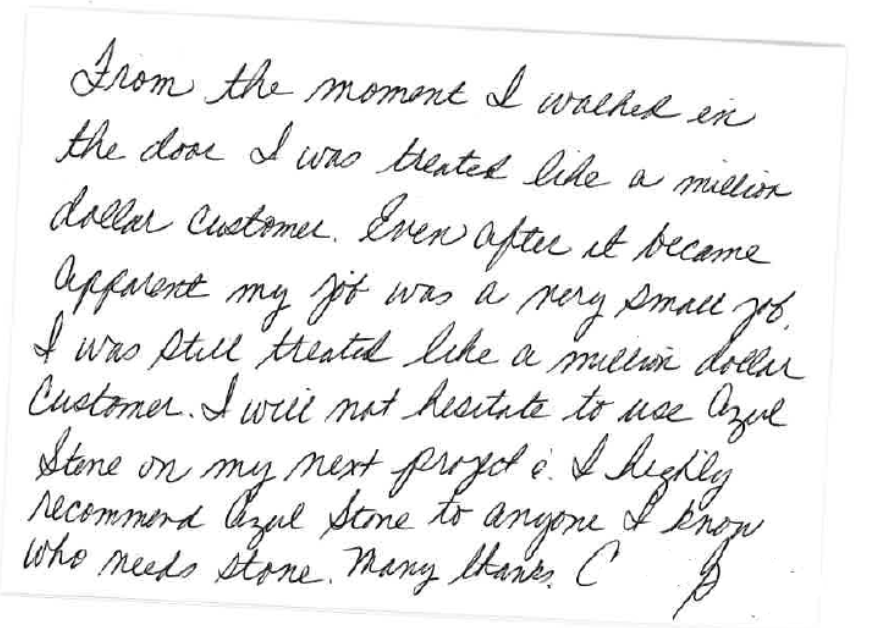 From the moment I walked in
the door I was treated like a million
dollar customer. Even after it became
apparent my job was a very small job,
I was still treated like a million dollar
customer. I will not hesitate to use Azul
Stone on my next project &. I highly
recommend Azul Stone to anyone I know
who needs stone. Many thanks. C B